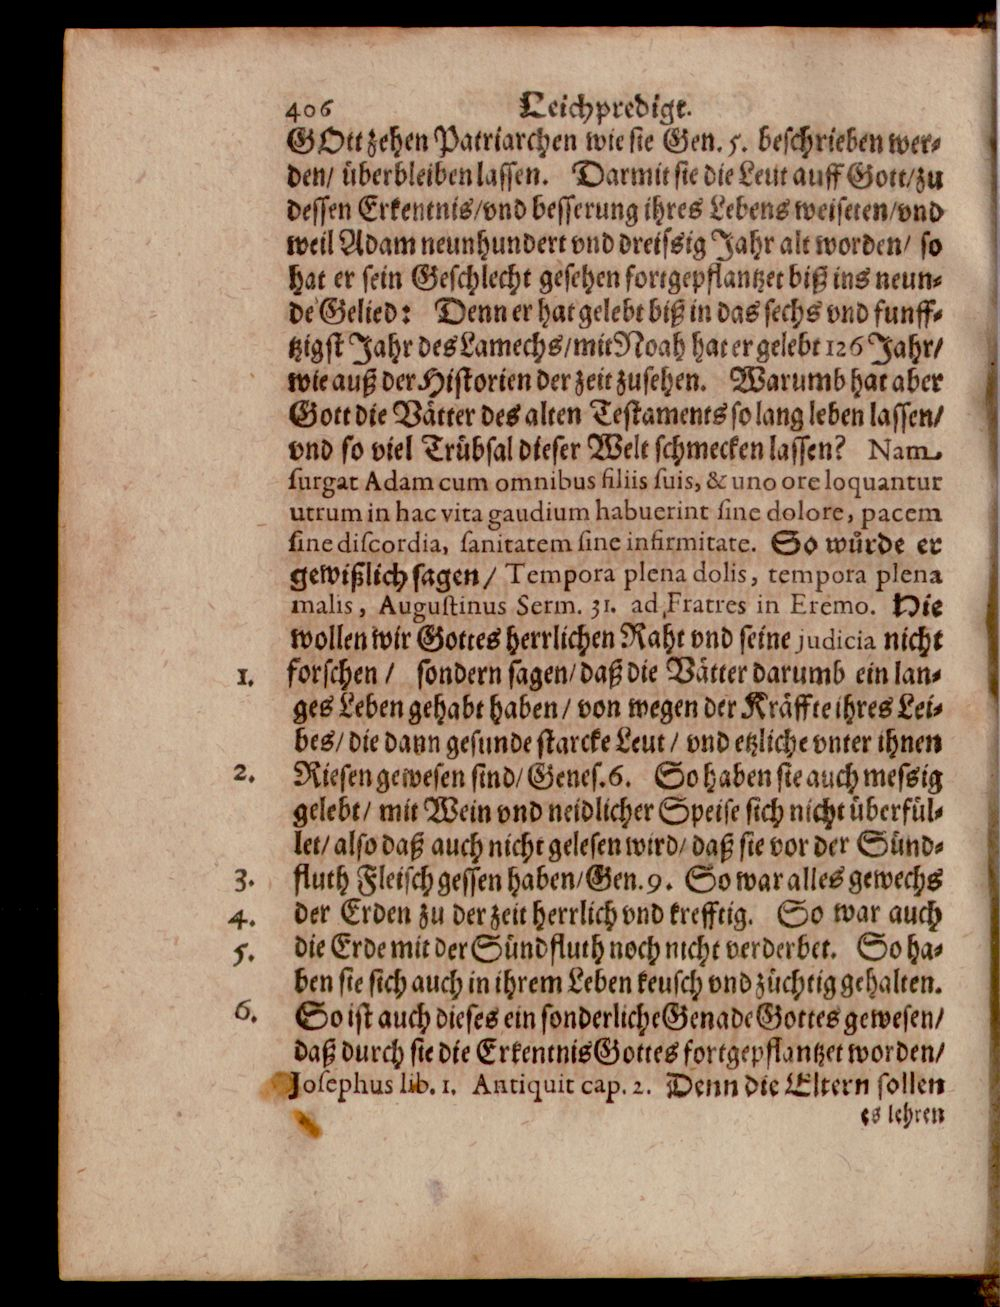 406 Leichpredigt.
GOtt zehen Patriarchen wie sie Gen. 5. beschrieben wer-
den/ überbleiben lassen. Darmit sie die Leut auff Gott/ zu
dessen Erkentnis/ vnd besserung ihres Lebens weiseten/ vnd
weil Adam neunhundert vnd dreissig Jahr alt worden/ so
hat er sein Geschlecht gesehen fortgepflantzet biß ins neun-
de Gelied: Denn er hat gelebt biß in das sechs vnd funff-
tzigst Jahr des Lamechs/ mit Noah hat er gelebt 126 Jahr/
wie auß der Historien der zeit zusehen. Warumb hat aber
Gott die Vätter des alten Testaments so lang leben lassen/
vnd so viel Trübsal dieser Welt schmecken lassen? Nam
surgat Adam cum omnibus filiis suis, & uno ore loquantur
utrum in hac vita gaudium habuerint sine dolore, pacem
sine discordia, sanitatem sine infirmitate. So würde er
gewißlich sagen/ Tempora plena dolis, tempora plena
malis, Augustinus Serm. 31. ad Fratres in Eremo. Hie
wollen wir Gottes herrlichen Raht vnd seine judicia nicht
1. forschen/ sondern sagen/ daß die Vätter darumb ein lan-
ges Leben gehabt haben/ von wegen der Kräffte ihres Lei-
bes/ die dann gesunde starcke Leut/ vnd etzliche vnter ihnen
2. Riesen gewesen sind/ Genes. 6. So haben sie auch messig
gelebt/ mit Wein vnd neidlicher Speise sich nicht überfül-
let/ also daß auch nicht gelesen wird/ daß sie vor der Sünd-
3. fluth Fleisch gessen haben/ Gen. 9. So war alles gewechs
4. der Erden zu der zeit herrlich vnd krefftig. So war auch
5. die Erde mit der Sündfluth noch nicht verderbet. So ha-
ben sie sich auch in ihrem Leben keusch vnd züchtig gehalten.
6. So ist auch dieses ein sonderliche Genade Gottes gewesen/
daß durch sie die Erkentnis Gottes fortgepflantzet worden/
Josephus lib. 1. Antiquit cap. 2. Denn die Eltern sollen
es lehren